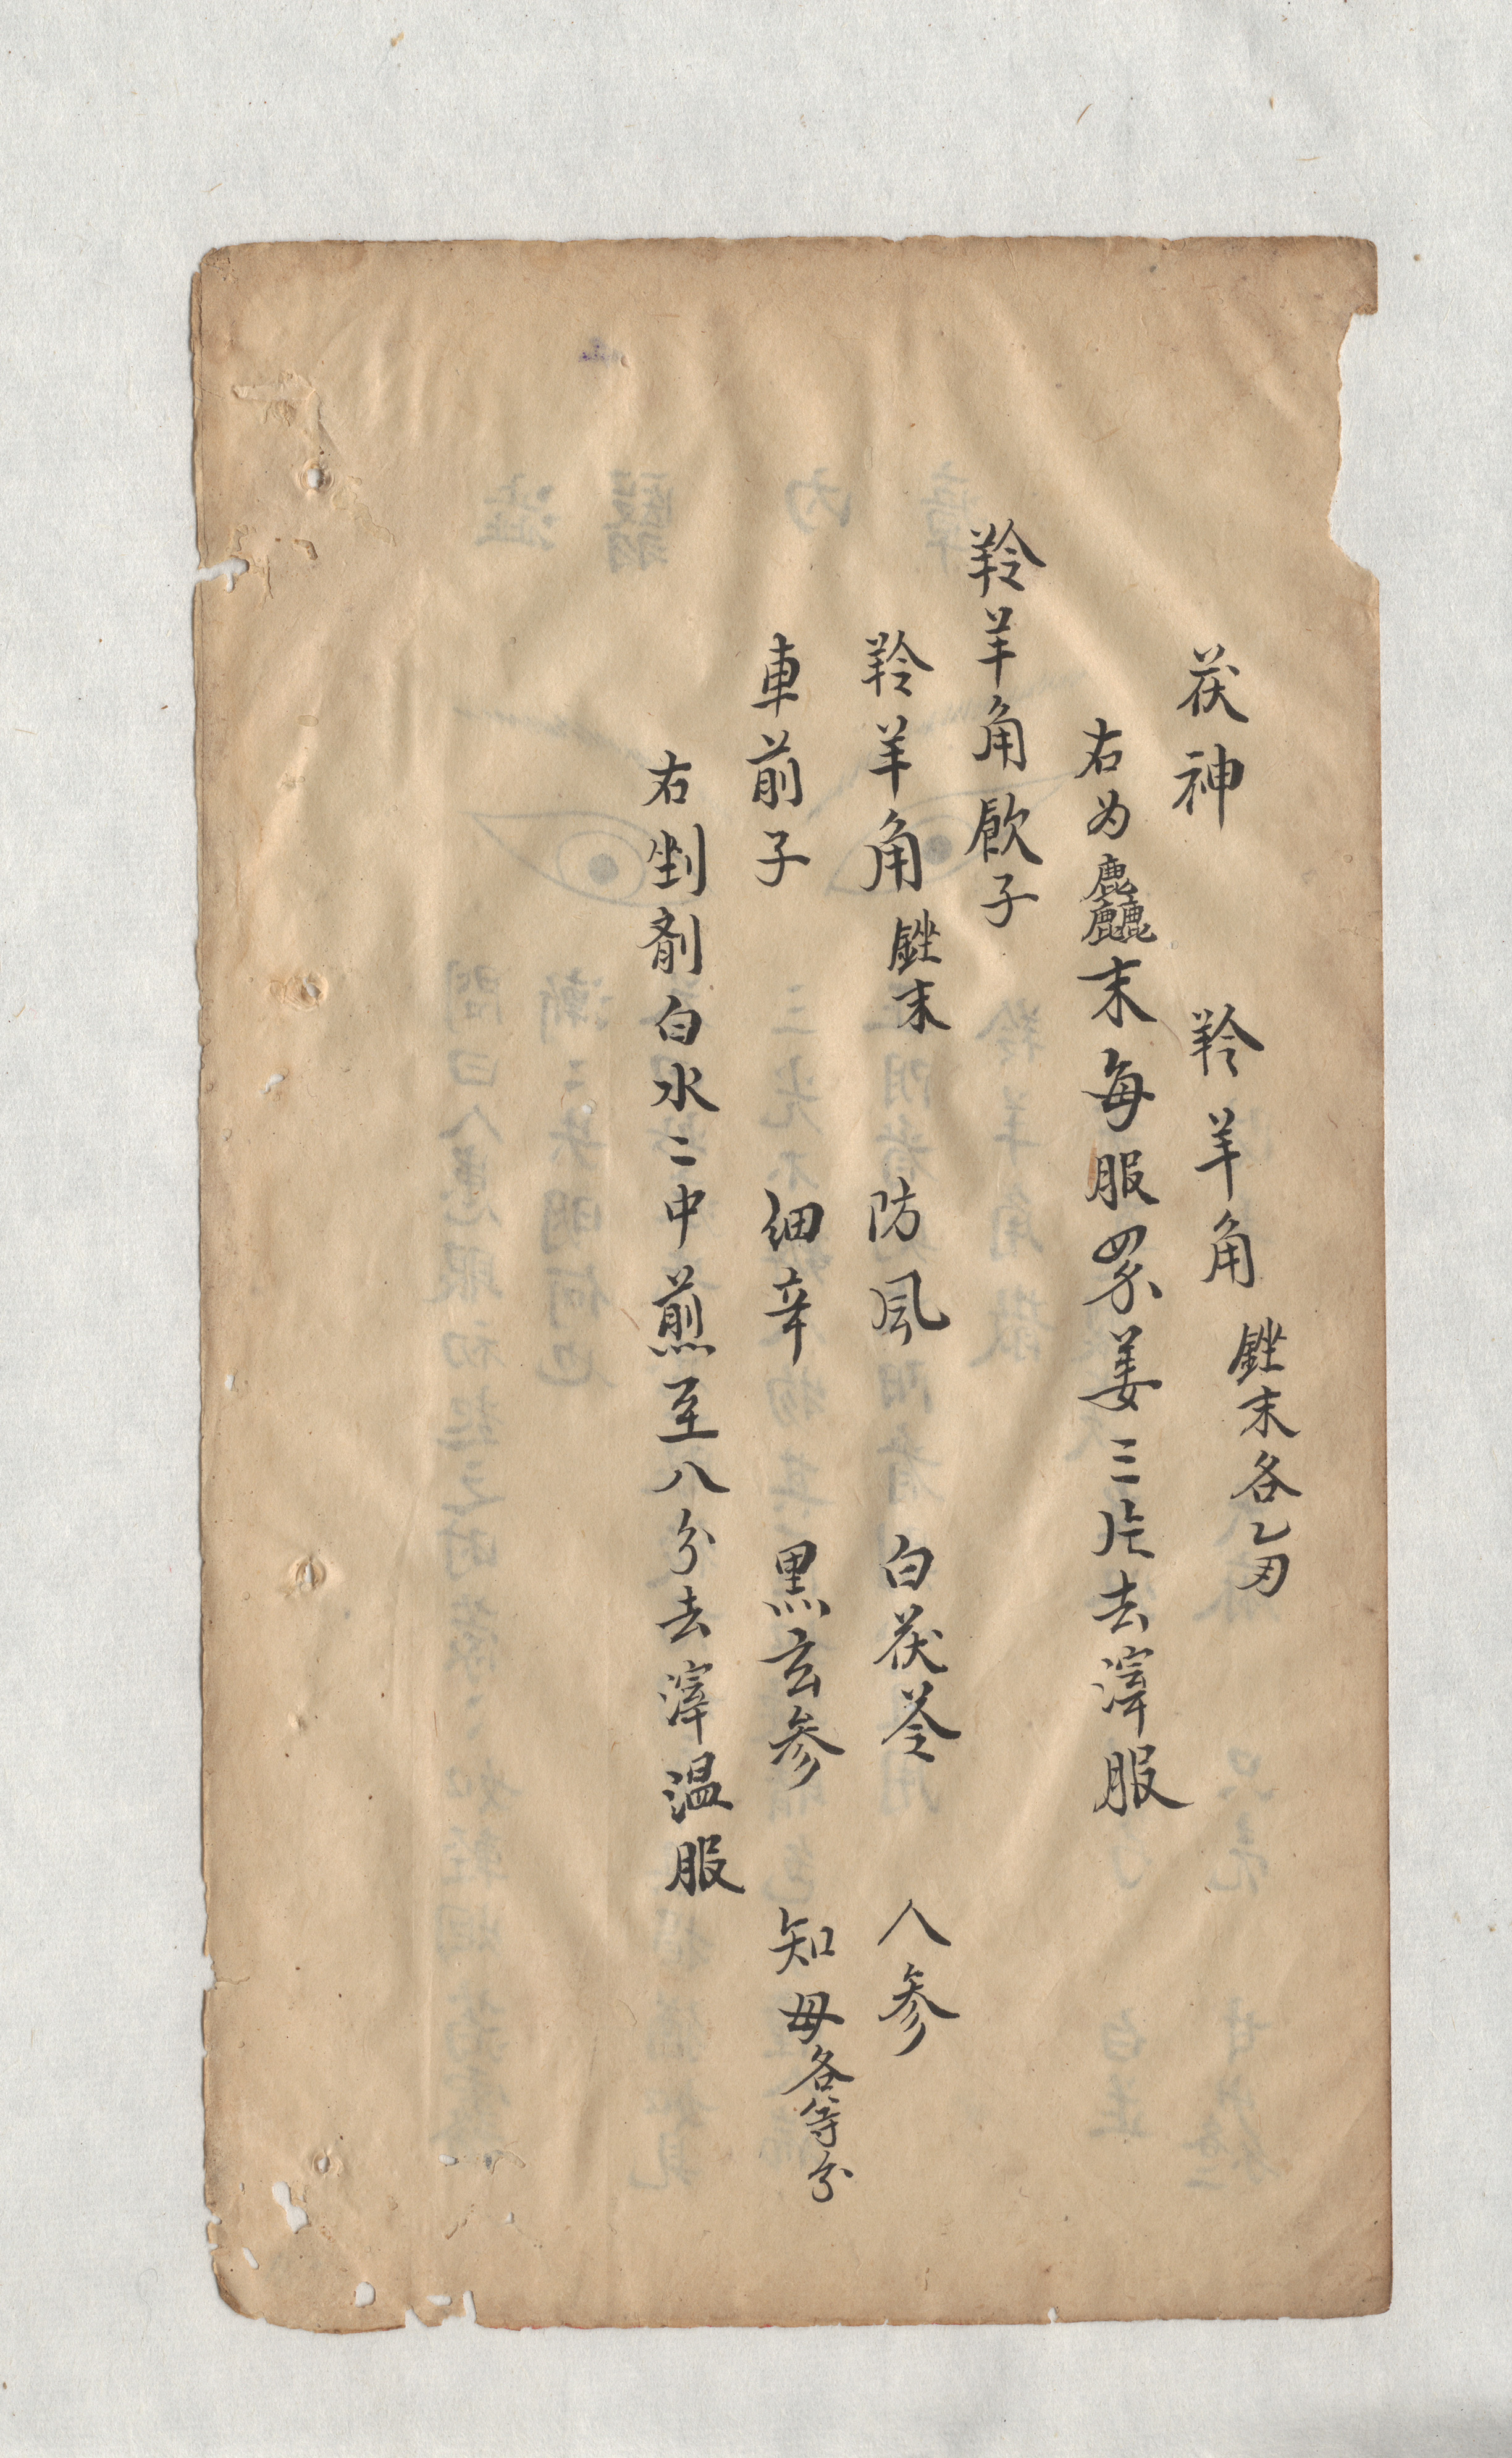 茯神　羚羊角 銼末各乙刄
右为麤末每服四錢姜三片去滓服
羚羊角飲子
羚羊角 銼末　防風　白茯苓　人参
車前子　細辛　黒玄参　知母 各等分
右剉剤白水二中煎至八分去滓温服